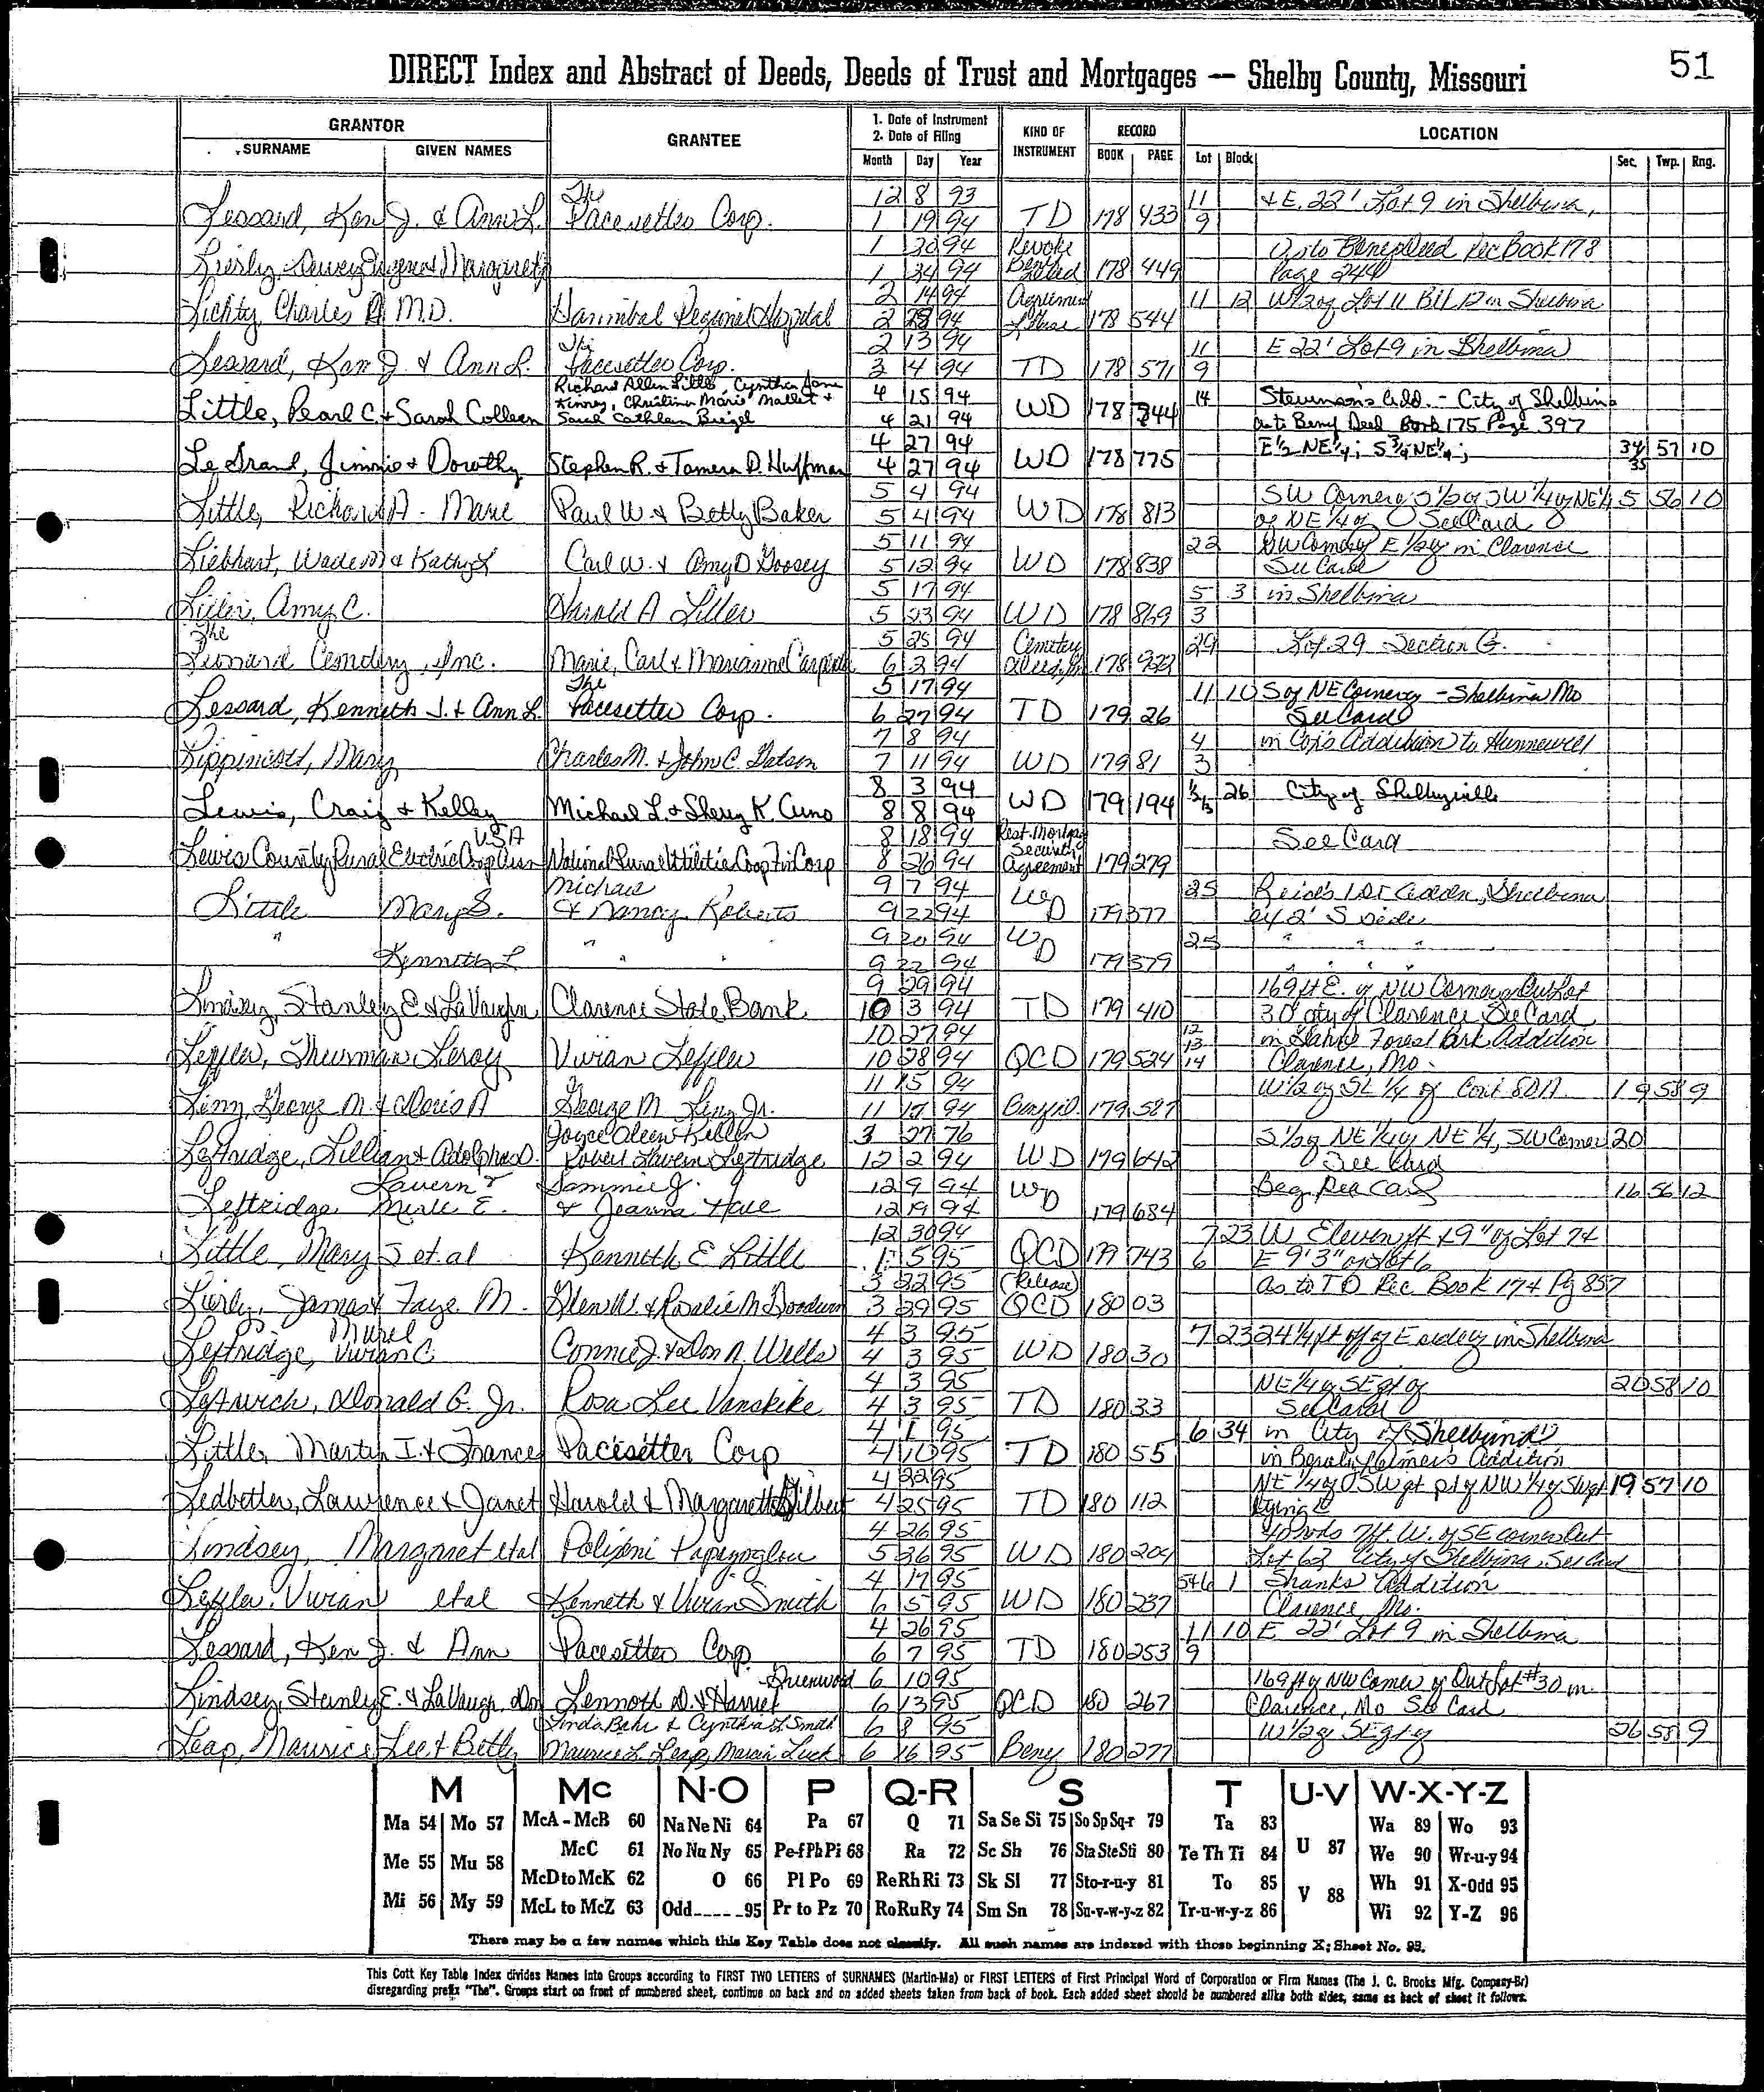 51
DIRECT Index and Abstract of Deeds, Deeds of Trust and Mortgages — Shelby County, Missouri
GRANTOR GRANTEE 1. Date of Instrument 2. Date of Filing KIND OF INSTRUMENT RECORD LOCATION
SURNAME GIVEN NAMES Month Day Year BOOK PAGE Lot Block Sec. Twp. Rng.
The 12 8 93 11 + E. 22' Lot 9 in Shelbina,
Lessard, Ken J. & Ann L. Pacesetter Corp. 1 19 94 TD 178 433 9
1 20 94 Revoke as to Bene Deed Rec Book 178
Margaret 1 24 94 Deed 178 449 Page 244
2 14 94 Agreement 11 12 W 1/2 of Lot 11 Blk 12 in Shelbina
Lichty, Charles M.D. Hannibal Regional Hospital 2 28 94 178 544
The 2 13 94 11 E 22' Lot 9 in Shelbina
Lessard, Ken J. & Ann L. Pacesetter Corp. 3 4 94 TD 178 571 9
Richard Allen Little, Cynthia Jane 4 15 94 14 City of Shelbina
Little, Pearl C. & Sarah Colleen Kinney, Christina Marie Mallet &
Sarah Cathleen 4 21 94 WD 178 744 as to Beny Deed Book 175 Page 397
4 27 94 E 1/2 NE 1/4; S 3/4 NE 1/4; 34 57 10
LeGrand, Jimmie & Dorothy Stephen R. & Tamera D. Huffman 4 27 94 WD 178 775 35
5 4 94 SW Corner of S 1/2 of SW 1/4 of NE 1/4 5 56 10
Little, Richard A. Marie Paul W. & Betty Baker 5 4 94 WD 178 813 of NE 1/4 of See Card
5 11 94 22 SW Corner of E 1/2 of in Clarence
Liebhart, Wade M & Kathy L Carl W. & Amy D Goosey 5 12 94 WD 178 838 See Card
5 17 94 5 3 in Shelbina
Amy C. Harold A 5 23 94 WD 178 869 3
The 5 25 94 Cemetery 29 Lot 29 Section G.
Leonard Cemetery, Inc. Marie, Carl & Marianne 6 2 94 Deed 178
The 5 17 94 11 10 S of NE Corner of - Shelbina Mo
Lessard, Kenneth J. & Ann L. Pacesetter Corp. 6 27 94 TD 179 26 See Card
7 8 94 4 in Cox's Addition to Hunnewell
Lippincott, Mary Charles M. & John C. 7 11 94 WD 179 81 3
8 3 94
Lewis, Craig & Kelley Michael L. & Sherry K. 8 8 94 WD 179 194 26 City of Shelbyville
USA 8 18 94 Rest. Mortgage Security See Card
Lewis County Rural Electric Coop Assn National Rural Utilities Coop Fin Corp 8 26 94 Agreement 179 279
Michael 9 7 94 25 Reid's 1st Addn, Shelbina
Little Mary S. & Nancy Roberts 9 22 94 WD 179 377 ex 2' S side
" 9 20 94 25 " " "
Kenneth L " " 9 22 94 WD 179 379 " " " "
9 29 94 169 ft E. of NW Corner Outlot
Lindsey, Stanley E & LaVaughn Clarence State Bank 10 3 94 TD 179 410 30 city of Clarence See Card
10 27 94 12 13 in Forest Park Addition
Leffler, Thurman Leroy Vivian Leffler 10 28 94 QCD 179 524 14 Clarence, Mo.
11 15 94 W 1/2 of SE 1/4 of Cont 80 A. 19 58 9
George M & Doris A George M Jr. 11 17 94 179 587
Joyce 3 27 76 S 1/2 of NE 1/4 of NE 1/4, SW Corner 20
Leftridge, Lillian & Adolphus D. Robert Lavern Leftridge 12 2 94 WD 179 642 See Card
Lavern & Sammie J. 12 9 94 Beg. See Card 16 56 12
Leftridge Merle E. & Jeanna Hale 12 19 94 WD 179 684
12 30 94 7 23 W Eleven ft & 9" of Lot 7
Little, Mary S et. al Kenneth E Little 1 5 95 QCD 179 743 6 E 9' 3" of Lot 6
3 22 95 (Release) as to TD Rec Book 174 Pg 857
James & Faye M. Glen W. & Rosalie M 3 29 95 QCD 180 03
Murel 4 3 95 7 23 24 1/4 ft off of E side of in Shelbina
Leftridge, Vivian C Connie J & Don A. Wells 4 3 95 WD 180 30
4 3 95 NE 1/4 of SE 20 58 10
Leftwich, Donald G. Jr. Rosa Lee Vanskike 4 3 95 TD 180 33 See Card
4 1 95 6 34 in City of Shelbina
Little, Martin I. & Frances Pacesetter Corp 4 10 95 TD 180 55 in Addition
4 22 95 NE 1/4 of SW pt of NW 1/4 of 19 57 10
Ledbetter, Lawrence & Janet Harold & Margaret Gilbert 4 25 95 TD 180 112 lying
4 26 95 40 rods 7 ft. W. of SE corner Out
Lindsey, Margaret etal 5 26 95 WD 180 204 Lot 63 City of Shelbina, See Card
4 17 95 5+6 1 Shanks Addition
Leffler, Vivian etal Kenneth & Vivian Smith 6 5 95 WD 180 237 Clarence Mo.
4 26 95 11 10 E 22' Lot 9 in Shelbina
Lessard, Ken J. & Ann Pacesetter Corp 6 7 95 TD 180 253 9
Greenwood 6 10 95 169 ft of NW Corner of Outlot #30 in
Lindsey, Stanley E. & LaVaugn, Don Lennoth D. & Harriet 6 13 95 QCD 180 267 Clarence, Mo See Card
Linda & Cynthia L Smith 6 8 95 W 1/2 of SE 26 58 9
Leap, Maurice Lee & Betty Maurice L Leap, Marcia Luck 6 16 95 Beny 180 277
M Mc N-O P Q-R S T U-V W-X-Y-Z
Ma 54 Mo 57 McA-McB 60 Na Ne Ni 64 Pa 67 Q 71 Sa Se Si 75 So Sp Sq-r 79 Ta 83 Wa 89 Wo 93
Me 55 Mu 58 McC 61 No Nu Ny 65 Pe-f Ph Pi 68 Ra 72 Sc Sh 76 Sta Ste Sti 80 Te Th Ti 84 U 87 We 90 Wr-u-y 94
McD to McK 62 O 66 Pl Po 69 Re Rh Ri 73 Sk Sl 77 Sto-r-u-y 81 To 85 Wh 91 X-Odd 95
Mi 56 My 59 McL to McZ 63 Odd-----95 Pr to Pz 70 Ro Ru Ry 74 Sm Sn 78 Su-v-w-y-z 82 Tr-u-w-y-z 86 V 88 Wi 92 Y-Z 96
There may be a few names which this Key Table does not classify. All such names are indexed with those beginning X; Sheet No. 95.
This Cott Key Table Index divides Names into Groups according to FIRST TWO LETTERS of SURNAMES (Martin-Ma) or FIRST LETTERS of First Principal Word of Corporation or Firm Names (The J. C. Brooks Mfg. Company-Br)
disregarding prefix "The". Groups start on front of numbered sheet, continue on back and on added sheets taken from back of book. Each added sheet should be numbered alike both sides, same as back of sheet it follows.